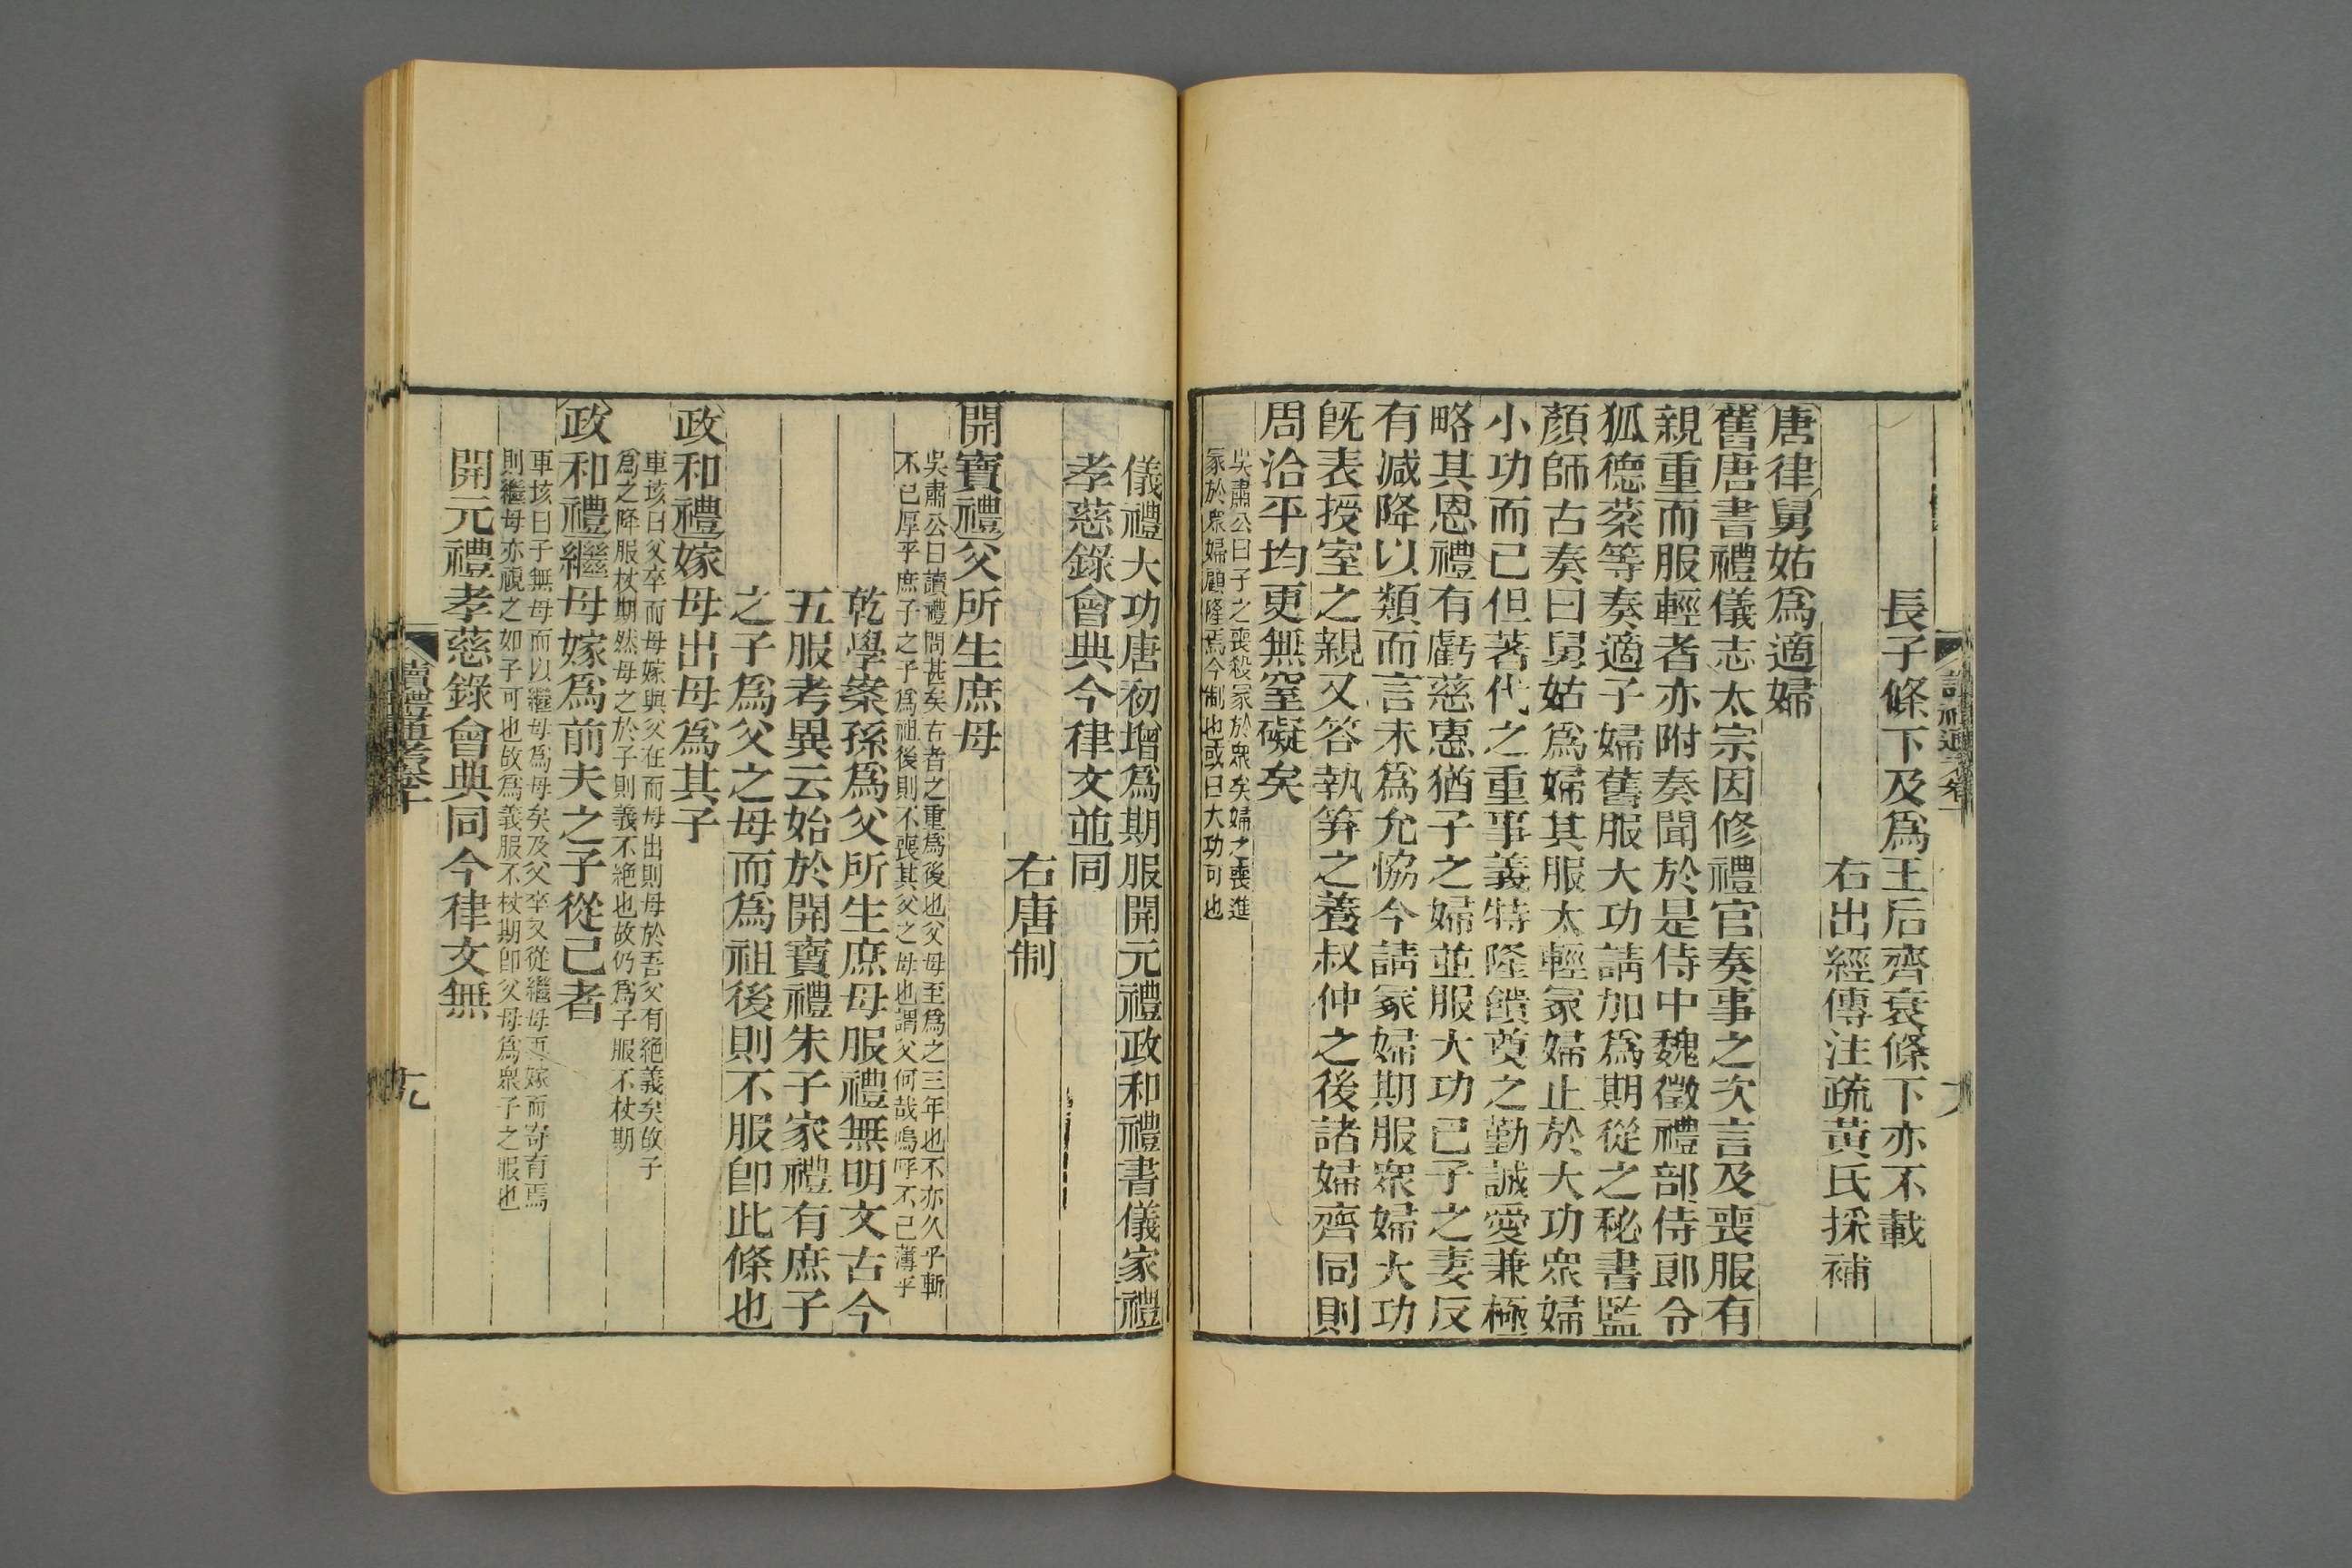 長子條下及爲王后齊衰條下亦不載
右出經傳注疏黃氏採補
唐律舅姑爲適婦
舊唐書禮儀志太宗因修禮官奏事之次言及喪服有
親重而服輕者亦附奏聞於是侍中魏徵禮部侍郎令
狐德棻等奏適子婦舊服大功請加爲期從之秘書監
顏師古奏曰舅姑爲婦其服太輕冢婦止於大功衆婦
小功而已但著代之重事義特隆饋奠之勤誠愛兼極
略其恩禮有虧慈惠猶子之婦並服大功已子之妻反
有減降以類而言未爲允協今請冢婦期服衆婦大功
旣表授室之親又答執笲之養叔仲之後諸婦齊同則
周洽平均更無窒礙矣
吳肅公曰子之喪殺冢於衆矣婦之喪進
冢於衆婦顧隆焉今制也或曰大功可也
儀禮大功唐初增爲期服開元禮政和禮書儀家禮
孝慈錄會典今律文並同
右唐制
開寶禮父所生庶母
吳肅公曰讀禮問甚矣古者之重爲後也父母至爲之三年也不亦久乎斬
不已厚乎庶子之子爲祖後則不喪其父之母也謂父何哉嗚呼不已薄乎
乾學案孫爲父所生庶母服禮無明文古今
五服考異云始於開寶禮朱子家禮有庶子
之子爲父之母而爲祖後則不服卽此條也
政和禮嫁母出母爲其子
車垓曰父卒而母嫁與父在而母出則母於吾父有絕義矣故子
爲之降服杖期然母之於子則義不絕也故仍爲子服不杖期
政和禮繼母嫁爲前夫之子從己者
車垓曰子無母而以繼母爲母矣及父卒又從繼母再嫁而寄育焉
則繼母亦視之如子可也故爲義服不杖期卽父母爲衆子之服也
開元禮孝慈錄會典同今律文無
讀禮通考卷十